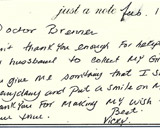 just a note Feb. 1
Doctor Brenner
n't thank you enough for help
husband to collect my G
give me something that I
everyday and put a smile on m
hank you for making my wish
true. Best.
Vicky